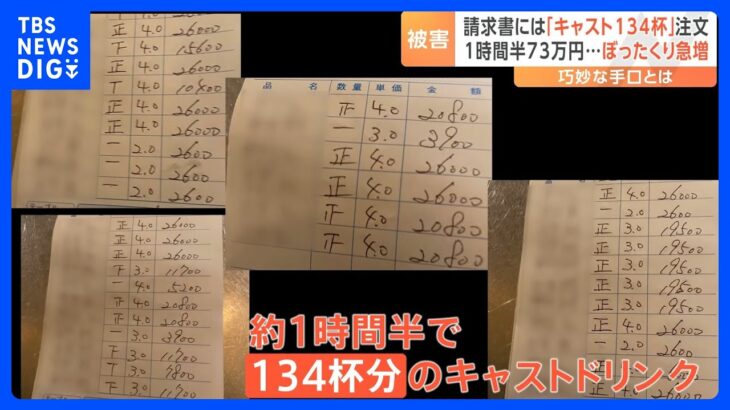 TBS NEWS DIG
被害
請求書には「キャスト134杯」注文
1時間半73万円…ぼったくり急増
巧妙な手口とは
正 4.0 26000
下 4.0 15600
正 4.0 26000
T 4.0 10400
正 4.0 26000
正 4.0 26000
一 2.0 2600
一 2.0 2600
一 2.0 2600
品 名 数量 単価 金額
正 4.0 20800
一 3.0 3900
正 4.0 26000
正 4.0 26000
正 4.0 20800
正 4.0 20800
正 4.0 26000
正 4.0 26000
正 4.0 26000
下 3.0 11700
一 4.0 5200
正 4.0 20800
正 4.0 20800
一 3.0 3900
下 3.0 11700
T 3.0 7800
下 3.0 11700
正 4.0 26000
一 2.0 2600
正 3.0 19500
正 3.0 19500
正 3.0 19500
正 3.0 19500
正 3.0 19500
正 4.0 26000
一 2.0 2600
正 4.0 26000
約1時間半で
134杯分のキャストドリンク